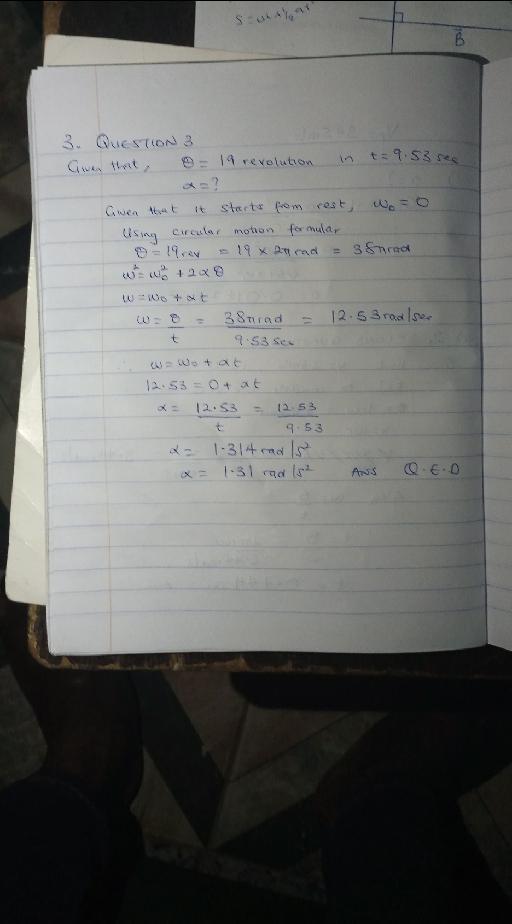 B
3. QUESTION 3
Given that, θ = 19 revolution in t = 9.53 sec
α = ?
Given that it starts from rest, ω₀ = 0
Using circular motion formular
θ = 19 rev = 19 × 2π rad = 38π rad
ω² = ω₀² + 2αθ
ω = ω₀ + αt
ω = θ/t = 38π rad/9.53 sec = 12.53 rad/sec
ω = ω₀ + αt
12.53 = 0 + αt
α = 12.53/t = 12.53/9.53
α = 1.314 rad/s²
α = 1.31 rad/s² ANS Q.E.D